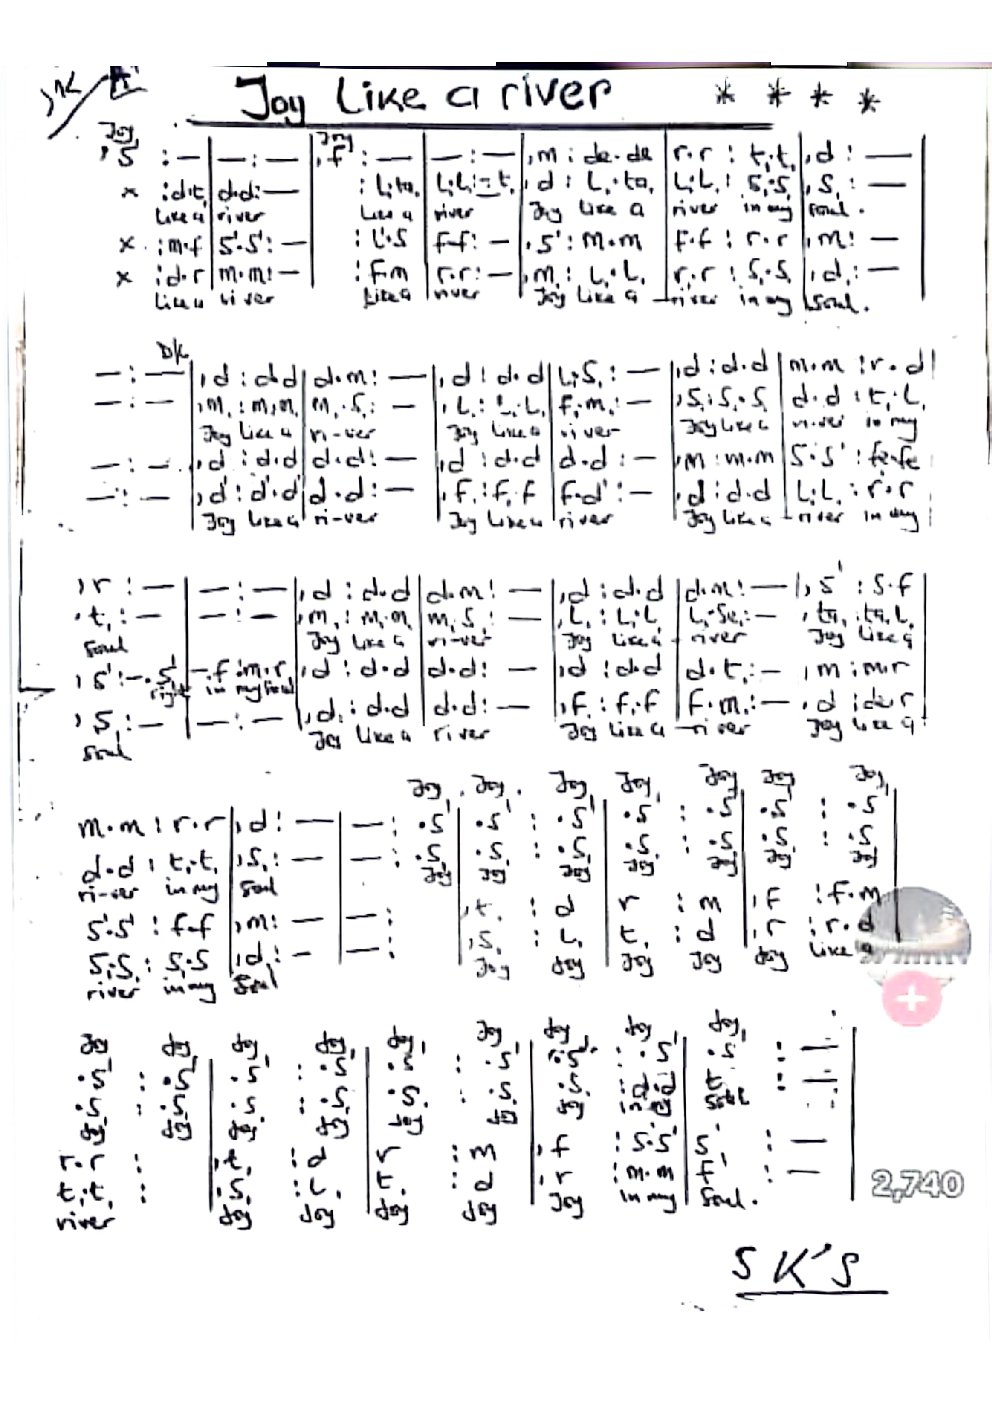 Joy Like a river * * * *
Joy Joy
,S :— | —:— | ,f :— | —:— | ,m : de.de | r.r : t,.t, | ,d :—
x :d.t, | d.d:— | :L,.ta, | L,.L,:—t, | ,d : L,.ta, | L,.L, : S,.S, | ,S, :—
Like a river Like a river Joy Like a river in my Soul.
x :m.f | S'.S':— | :L'.S | f.f:— | ,S' : m.m | f.f : r.r | ,m:—
x :d.r | m.m:— | :f.m | r.r:— | ,m, : L,.L, | r.r : S,.S, | ,d,:—
Like a river Like a river Joy Like a river in my Soul.
D/C
—:— | ,d : d.d | d.m:— | ,d : d.d | L,.S,:— | ,d : d.d | m.m : r.d
—:— | ,m, : m,.m, | m,.S,:— | ,L, : L,.L, | f,.m,:— | ,S, : S,.S, | d.d : t,.L,
Joy Like a ri-ver Joy Like a river Joy Like a river in my
—:— | ,d : d.d | d.d:— | ,d : d.d | d.d:— | ,m : m.m | S'.S' : fe.fe
—:— | ,d' : d'.d' | d.d:— | ,f, : f,.f | f.d':— | ,d : d.d | L,.L, : r.r
Joy Like a ri-ver Joy Like a river Joy Like a river in my
,r :— | —:— | ,d : d.d | d.m:— | ,d : d.d | d.m:— | ,S' : S.f
,t, :— | —:— | ,m, : m,.m, | m,.S,:— | ,L, : L,.L | L,.Se,:— | ,ta, : ta,.L,
Soul Joy Like a ri-ver Joy Like a river Joy Like a
,S' :—.S' | —f :m.r | ,d : d.d | d.d:— | ,d : d.d | d.t,:— | ,m : m.r
right in my Soul
,S, :— | —:— | ,d, : d.d | d.d:— | ,f, : f,.f | f.m,:— | ,d : d.r
Soul Joy Like a river Joy Like a river Joy Like a
Joy Joy Joy Joy Joy Joy Joy
m.m : r.r | ,d:— | —: .S' | .S' : .S' | .S' : .S' | .S' : .S'
d.d : t,.t, | ,S,:— | —: .S, | .S, : .S, | .S, : .S, | .S, : .S
ri-ver in my Soul Joy Joy Joy Joy Joy Joy Joy
S'.S' : f.f | ,m:— | —: | ,t, : d | r : m | ,f : f.m
S,.S, : S,.S | ,d,:— | —: | ,S, : L, | t, : d | ,r : r.d
river in my Soul Joy Joy Joy Joy Joy Like a
Joy Joy Joy Joy Joy Joy Joy Joy Joy
.S' : .S' | .S' : .S' | .S' : .S' | .S' : .S' | .S' : —
.S, : .S, | .S, : .S, | .S, : .S,
Joy Joy Joy Joy Joy Joy Joy
r.r : | ,t, : d | r : m | ,f : S'.S' | S' : —
t,.t, : | ,S, : L, | t : d | ,r : m.m | f' : —
river Joy Joy Joy Joy Joy in my Soul.
2,740
S K's